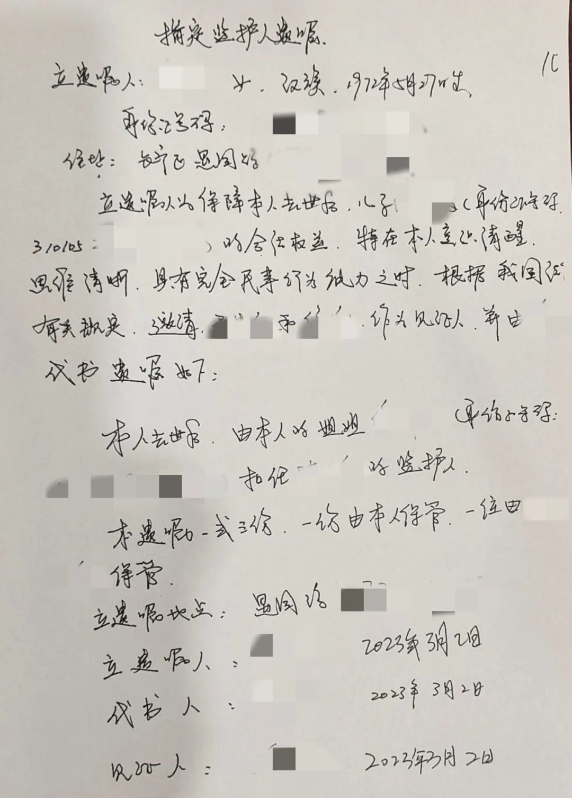 指定监护人遗嘱
立遗嘱人: 女, 汉族, 1972年5月27日生,
身份证号码:
住址: 长宁区愚园路
立遗嘱人为保障本人去世后, 儿子 (身份证号码:
310105 ) 的合法权益, 特在本人意识清醒,
思维清晰, 具有完全民事行为能力之时, 根据我国法
有关规定, 邀请 和 作为见证人, 并由
代书遗嘱如下:
本人去世后, 由本人的姐姐 (身份证号码:
担任 的监护人.
本遗嘱一式三份, 一份由本人保管, 一位由
保管.
立遗嘱地点: 愚园路
立遗嘱人: 2023年3月2日
代书人: 2023年3月2日
见证人: 2023年3月2日